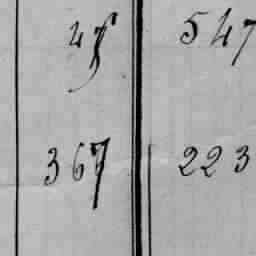 547
367 223